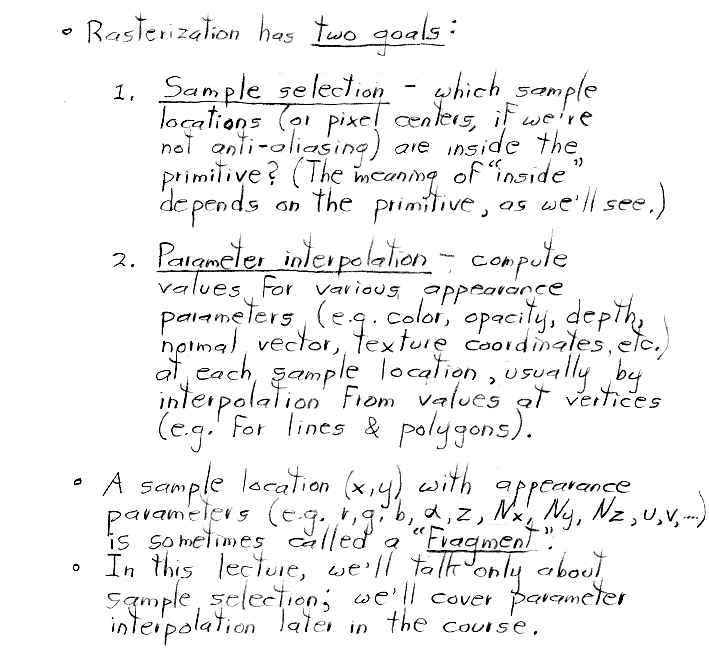 • Rasterization has two goals:
1. Sample selection - which sample
locations (or pixel centers, if we're
not anti-aliasing) are inside the
primitive? (The meaning of "inside"
depends on the primitive, as we'll see.)
2. Parameter interpolation - compute
values for various appearance
parameters (e.g. color, opacity, depth,
normal vector, texture coordinates, etc.)
at each sample location, usually by
interpolation from values at vertices
(e.g. for lines & polygons).
• A sample location (x,y) with appearance
parameters (e.g. r,g,b,α,z,Nx,Ny,Nz,u,v,...)
is sometimes called a "Fragment".
• In this lecture, we'll talk only about
sample selection; we'll cover parameter
interpolation later in the course.